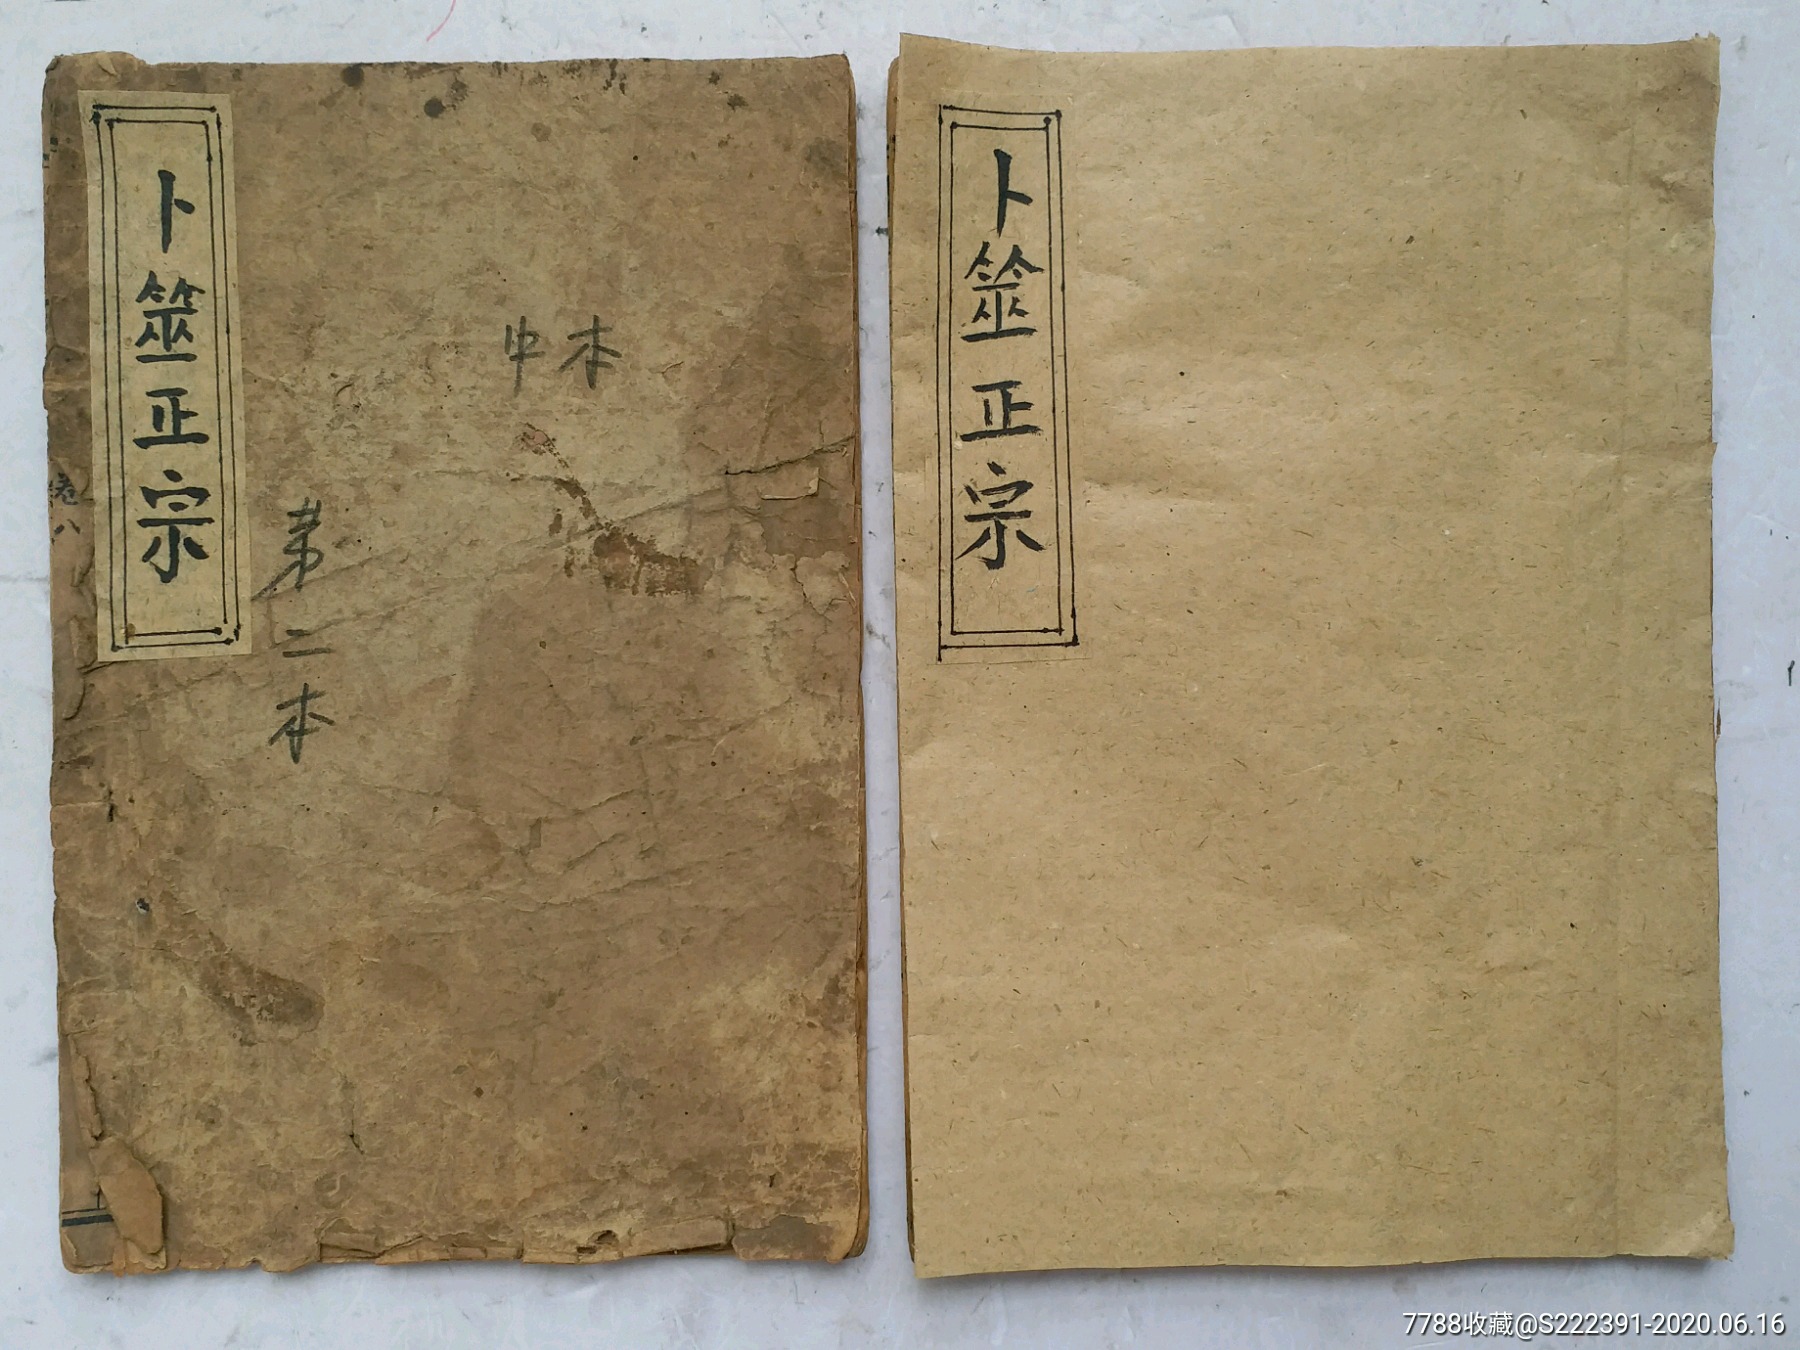 卜筮正宗
中本
第二本
卷八
卜筮正宗
7788收藏@S222391-2020.06.16